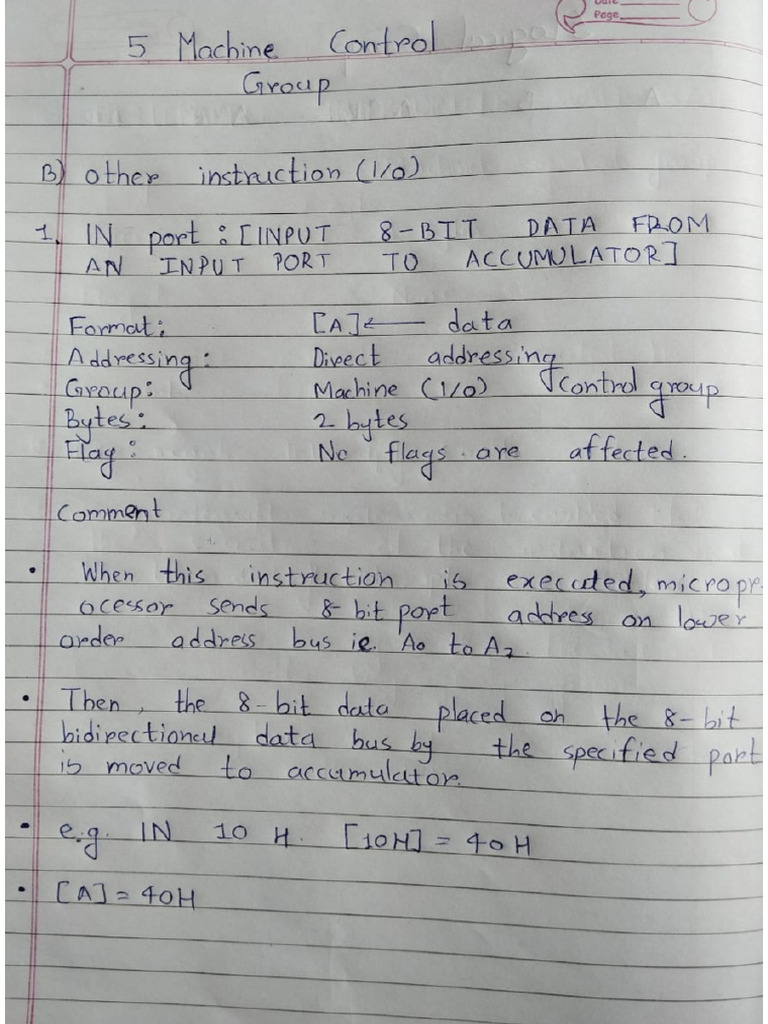 Date
Page
5 Machine Control
Group
B) other instruction (I/O)
1. IN port : [INPUT 8-BIT DATA FROM
AN INPUT PORT TO ACCUMULATOR]
Format: [A] ← data
Addressing: Direct addressing
Group: Machine (I/O) control group
Bytes: 2 bytes
Flag: No flags are affected.
Comment
• When this instruction is executed, micropr-
ocessor sends 8-bit port address on lower
order address bus ie. A0 to A7
• Then, the 8-bit data placed on the 8-bit
bidirectional data bus by the specified port
is moved to accumulator.
• e.g. IN 10 H. [10H] = 40H
• [A] = 40H